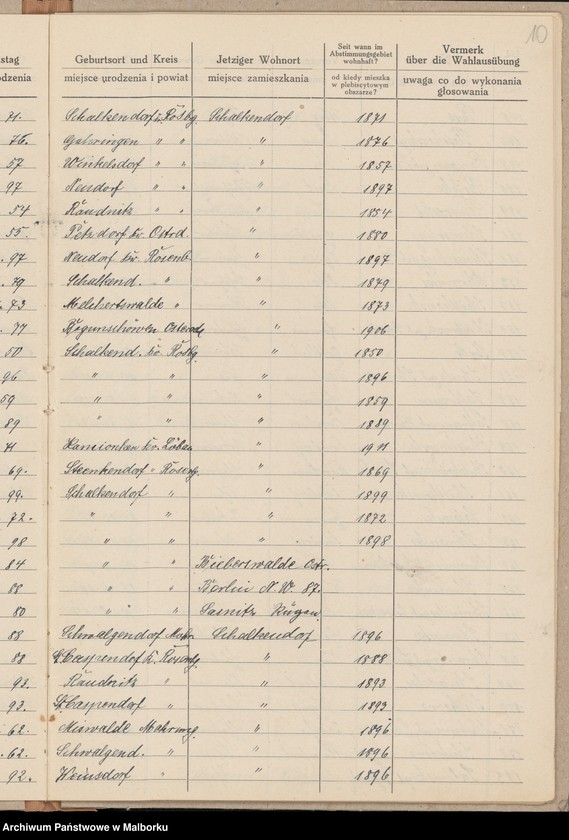 10
stag Geburtsort und Kreis Jetziger Wohnort Seit wann im Abstimmungsgebiet wohnhaft? Vermerk über die Wahlausübung
odzenia miejsce urodzenia i powiat miejsce zamieszkania od kiedy mieszka w plebiscytowym obszarze? uwaga co do wykonania głosowania
71. Schalkendorf Kr. Rosbg. Schalkendorf 1871
76. " " " 1876
57 Winkelsdorf " " " 1857
97 Neudorf " " " 1897
54 Raudnitz " " " 1854
55. Petzdorf Kr. Ostrd. " 1880
97 Neudorf Kr. Rosenb " 1897
79 Schalkend. " " 1879
73 Melchertswalde " " 1873
77 " 1906
50 Schalkend. Kr. Rosbg. " 1850
96 " " " 1896
59 " " " 1859
89 " " " 1889
71 Kr. Löbau "
69. Steenkendorf " Rosenbg. " 1869
99. Schalkendorf " " 1899
72. " " " 1872
98 " " " 1898
84 " " Bieberswalde Ostr.
88 " " Berlin N.W. 87
80 " " Sasnitz Rügen
88 Schwalgendorf Mohr. Schalkendorf 1896
88 Gr. Caspendorf Kr. Rosenbg. " 1888
93. Raudnitz " " 1893
93. Gr. Caspendorf " " 1893
62. Miswalde Mohrung. " 1896
62. Schwalgend. " " 1896
92. Weinsdorf " " 1896
Archiwum Państwowe w Malborku